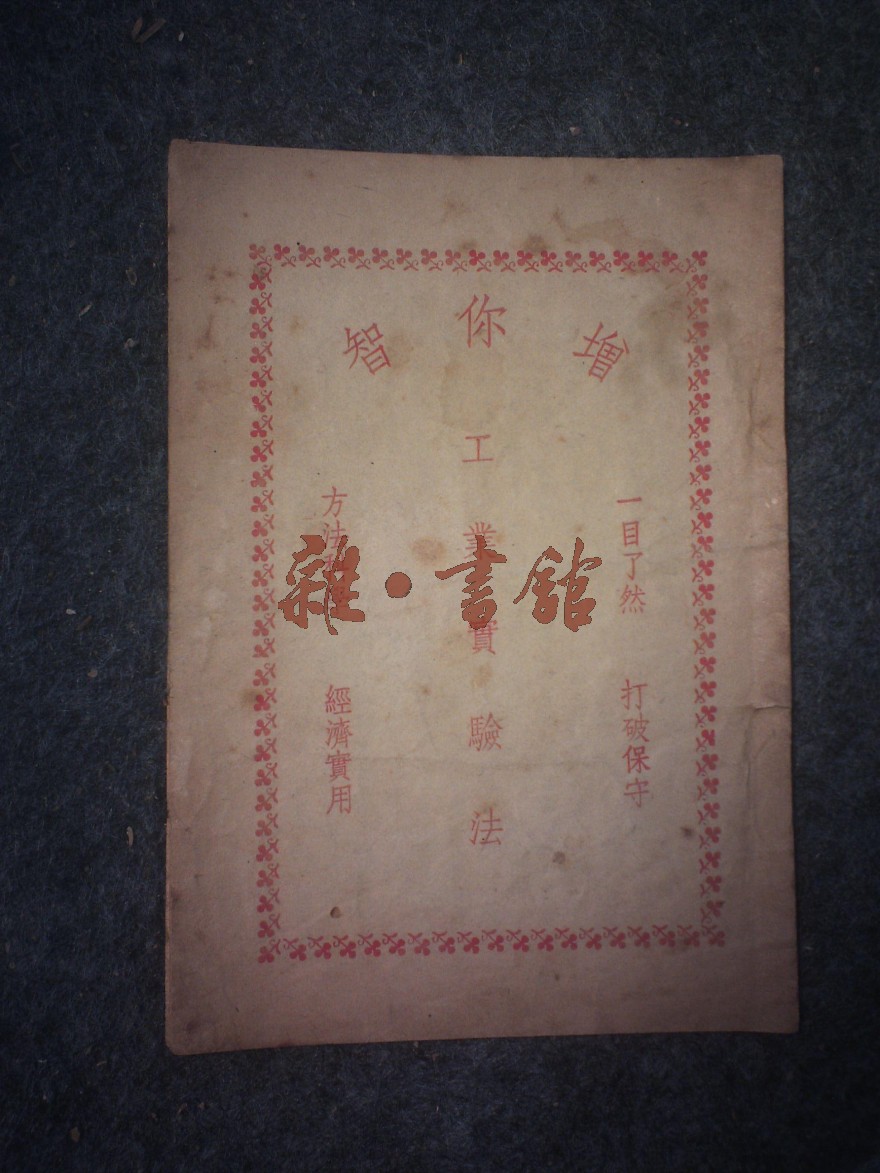 增你智
一目了然 打破保守
工業實驗法
方法 經濟實用
雜·書館